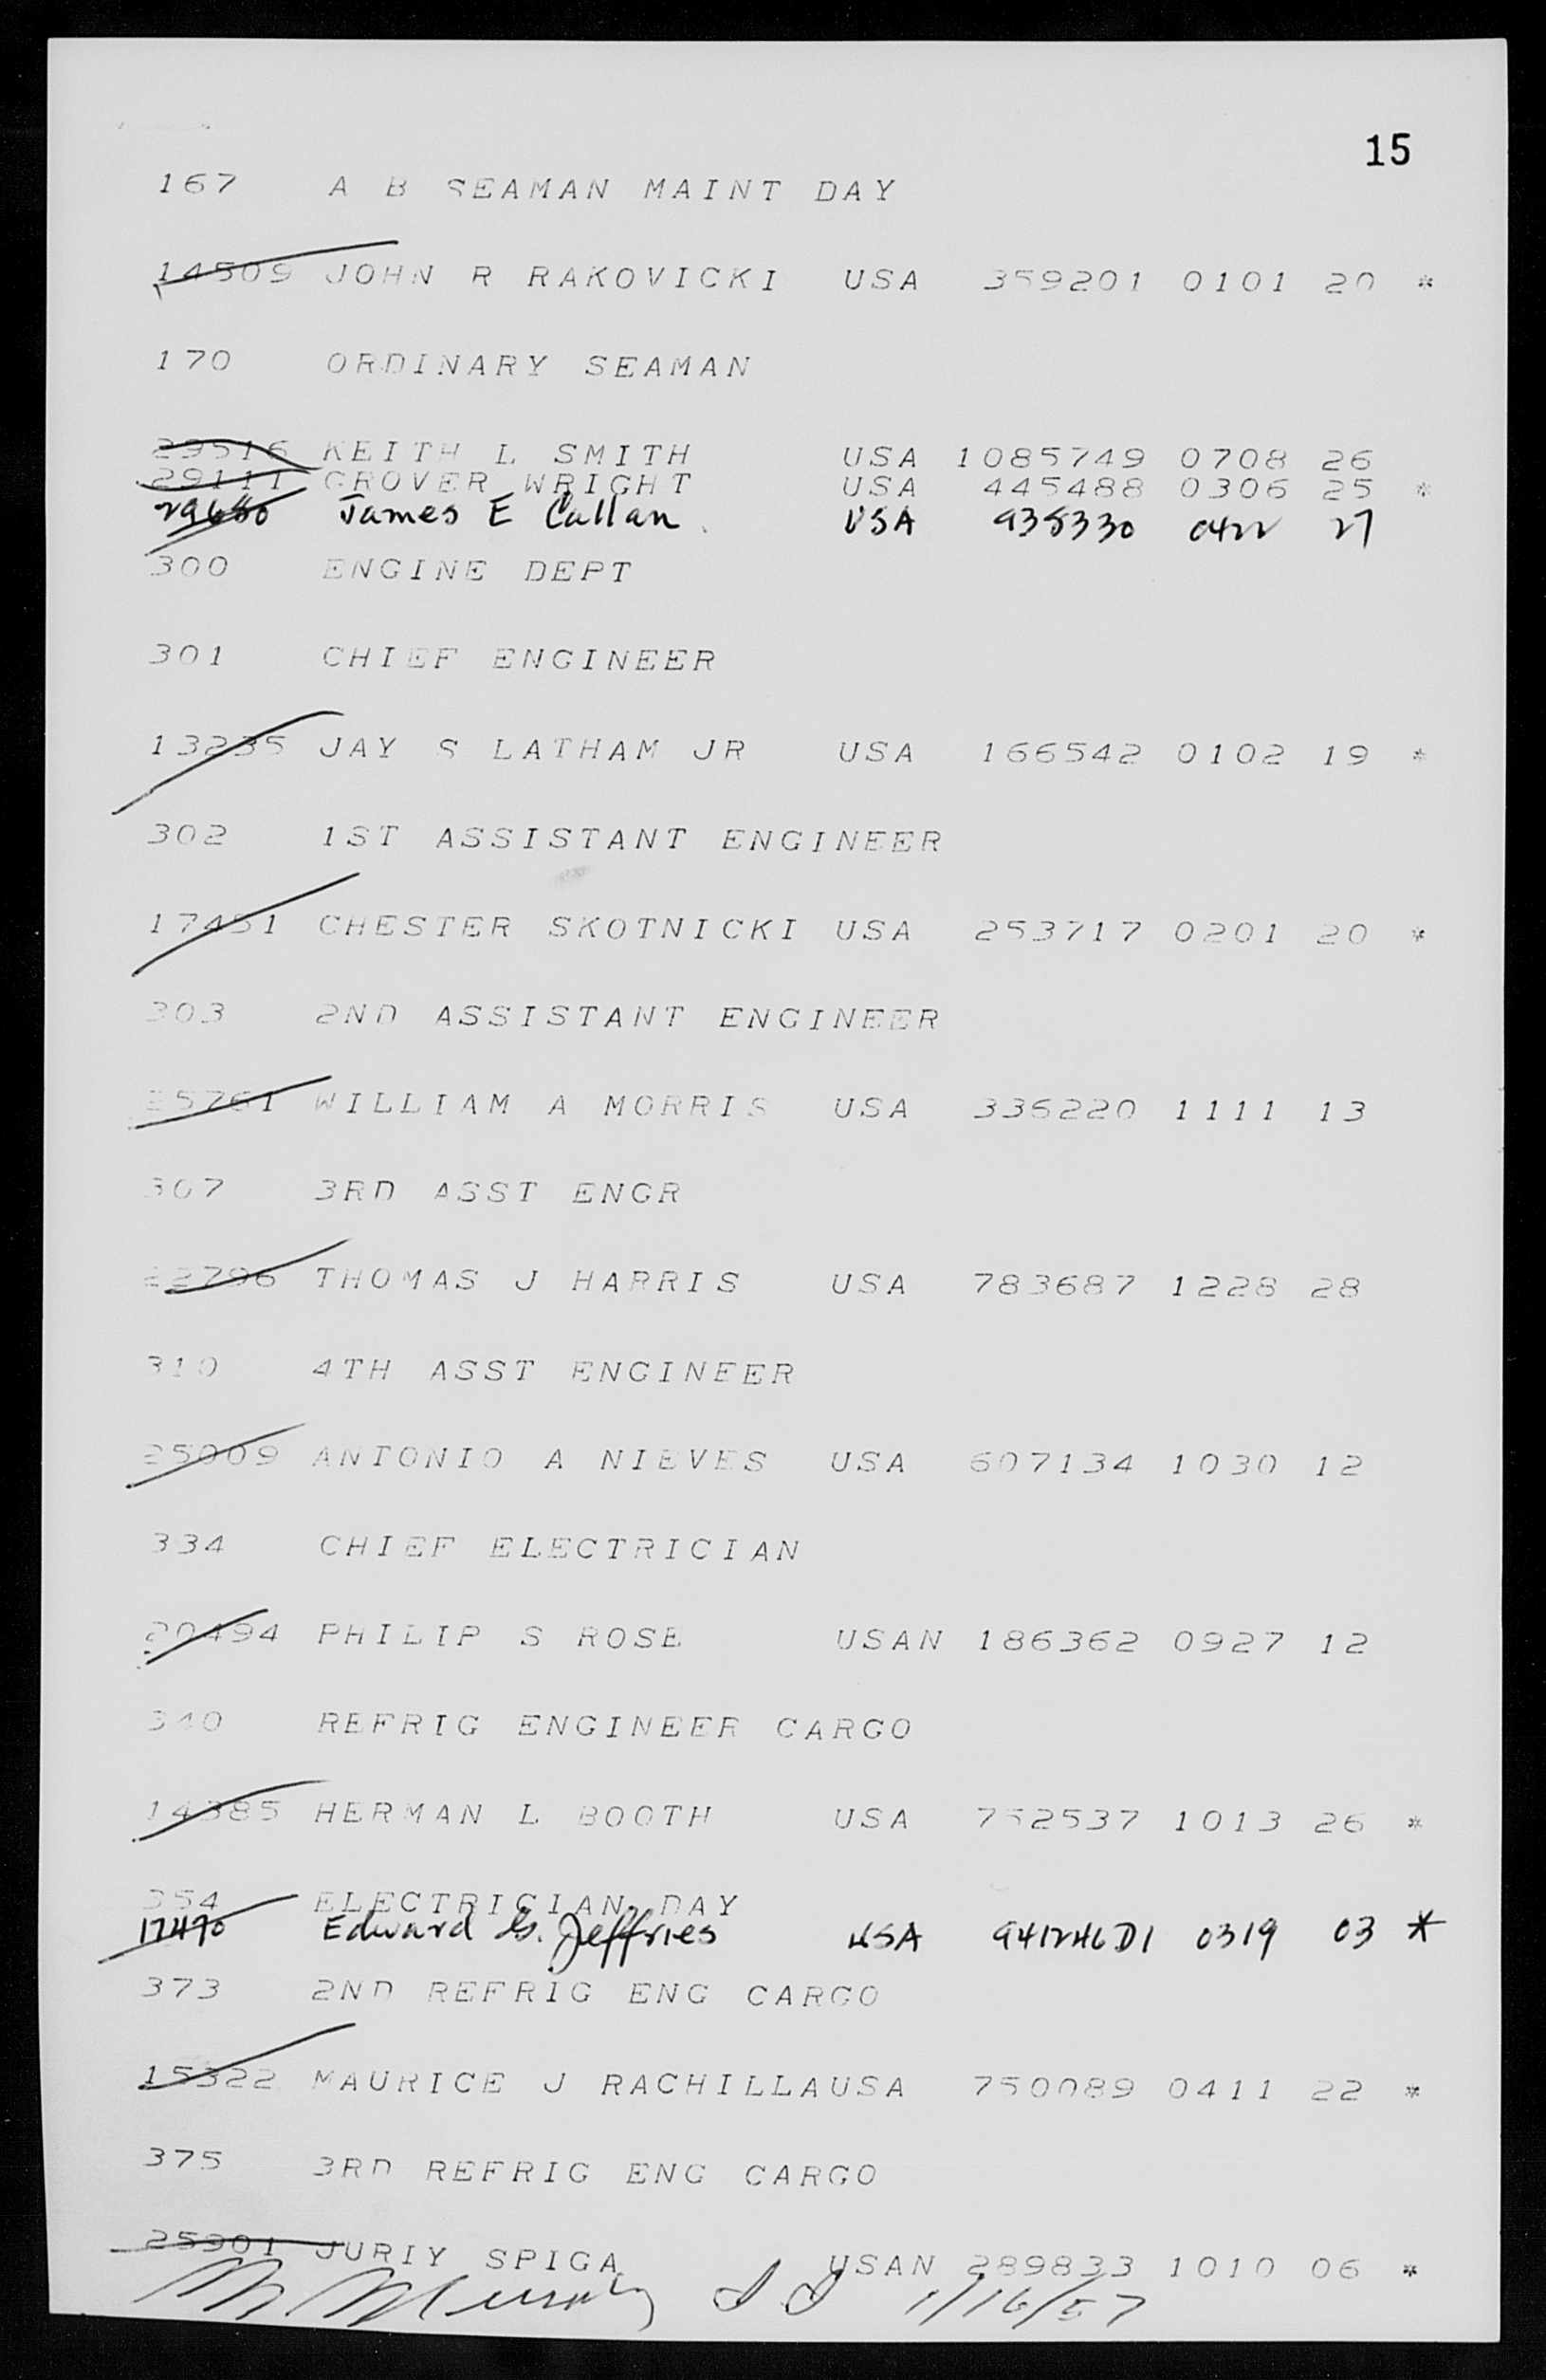 15
167 A B SEAMAN MAINT DAY
14509 JOHN R RAKOVICKI USA 359201 0101 20 *
170 ORDINARY SEAMAN
29516 KEITH L SMITH USA 1085749 0708 26
29111 GROVER WRIGHT USA 445488 0306 25 *
29680 James E Callan USA 935330 0422 27
300 ENGINE DEPT
301 CHIEF ENGINEER
13235 JAY S LATHAM JR USA 166542 0102 19 *
302 1ST ASSISTANT ENGINEER
17451 CHESTER SKOTNICKI USA 253717 0201 20 *
303 2ND ASSISTANT ENGINEER
25761 WILLIAM A MORRIS USA 336220 1111 13
307 3RD ASST ENGR
22796 THOMAS J HARRIS USA 783687 1228 28
310 4TH ASST ENGINEER
25009 ANTONIO A NIEVES USA 607134 1030 12
334 CHIEF ELECTRICIAN
20494 PHILIP S ROSE USAN 186362 0927 12
340 REFRIG ENGINEER CARGO
14385 HERMAN L BOOTH USA 752537 1013 26 *
354 ELECTRICIAN DAY
17470 Edward G. Jeffries USA 941246D1 0319 03 *
373 2ND REFRIG ENG CARGO
15322 MAURICE J RACHILLAUSA 750089 0411 22 *
375 3RD REFRIG ENG CARGO
25901 JURIY SPIGA USAN 289833 1010 06 *
1/16/57